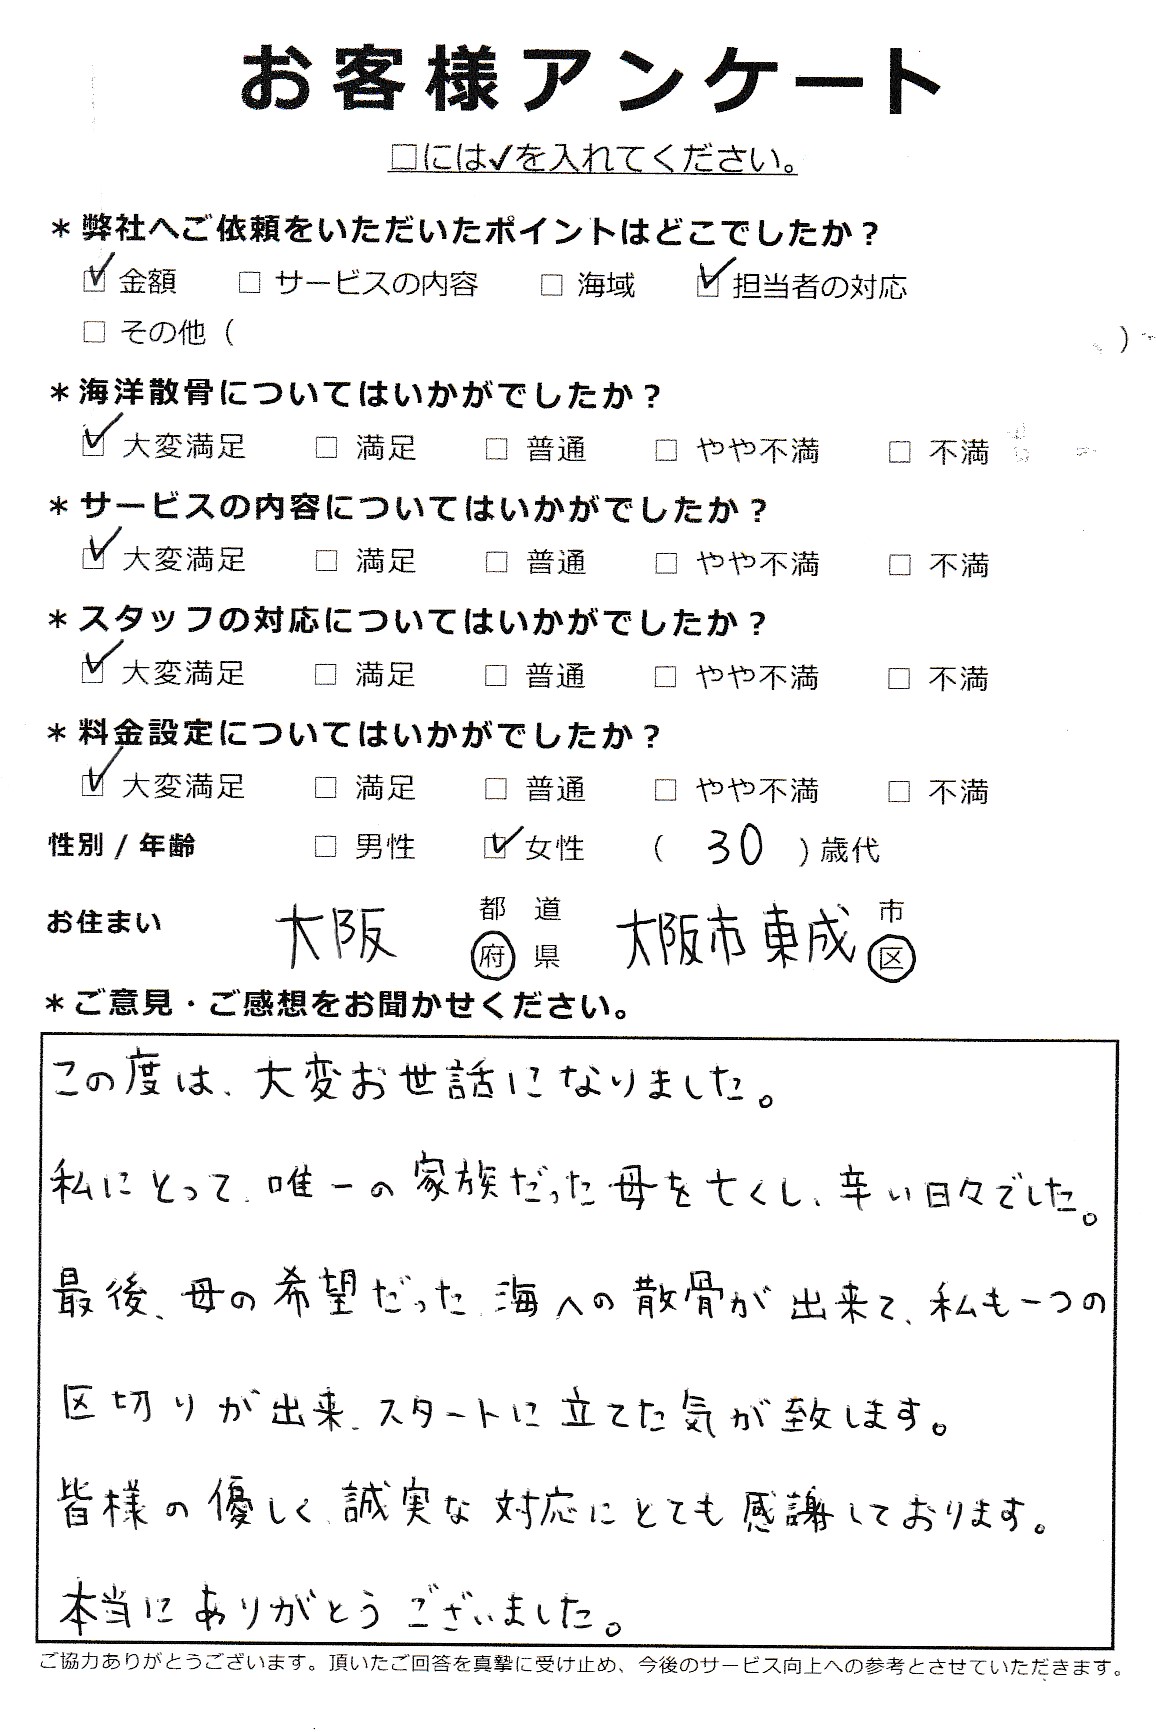 お客様アンケート
□には✓を入れてください。
＊弊社へご依頼をいただいたポイントはどこでしたか？
☑ 金額 □ サービスの内容 □ 海域 ☑ 担当者の対応
□ その他（ ）
＊海洋散骨についてはいかがでしたか？
☑ 大変満足 □ 満足 □ 普通 □ やや不満 □ 不満
＊サービスの内容についてはいかがでしたか？
☑ 大変満足 □ 満足 □ 普通 □ やや不満 □ 不満
＊スタッフの対応についてはいかがでしたか？
☑ 大変満足 □ 満足 □ 普通 □ やや不満 □ 不満
＊料金設定についてはいかがでしたか？
☑ 大変満足 □ 満足 □ 普通 □ やや不満 □ 不満
性別 / 年齢 □ 男性 ☑ 女性 （ 30 ）歳代
お住まい 大阪 都 道 府 県 大阪市東成 市 区
＊ご意見・ご感想をお聞かせください。
この度は、大変お世話になりました。
私にとって、唯一の家族だった母を亡くし、辛い日々でした。
最後、母の希望だった、海への散骨が出来て、私も一つの
区切りが出来、スタートに立てた気が致します。
皆様の優しく、誠実な対応にとても感謝しております。
本当にありがとうございました。
ご協力ありがとうございます。頂いたご回答を真摯に受け止め、今後のサービス向上への参考とさせていただきます。